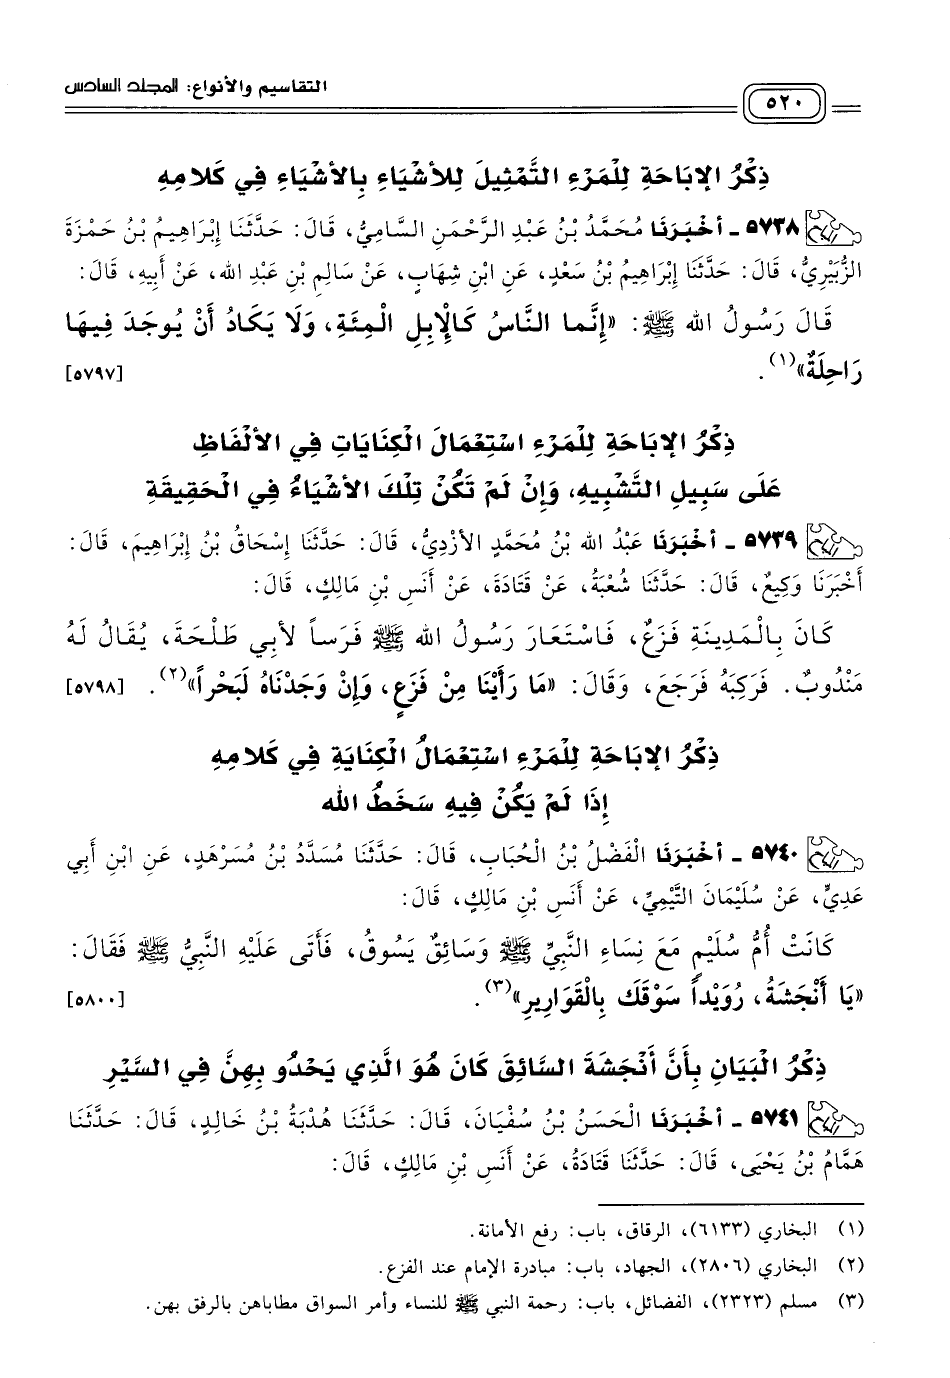 التقاسيم والأنواع: المجلد السادس
٥٢٠
ذِكْرُ الإبَاحَةِ لِلْمَرْءِ التَّمْثِيلَ لِلأشْيَاءِ بِالأشْيَاءِ فِي كَلامِهِ
٥٧٣٨ ـ أخْبَرَنَا مُحَمَّدُ بْنُ عَبْدِ الرَّحْمَنِ السَّامِيُّ، قَالَ: حَدَّثَنَا إبْرَاهِيمُ بْنُ حَمْزَةَ
الزُّبَيْرِيُّ، قَالَ: حَدَّثَنَا إبْرَاهِيمُ بْنُ سَعْدٍ، عَنِ ابْنِ شِهَابٍ، عَنْ سَالِمِ بْنِ عَبْدِ الله، عَنْ أبِيهِ، قَالَ:
قَالَ رَسُولُ الله ﷺ: «إنَّمَا النَّاسُ كَالْإبِلِ الْمِئَةِ، وَلَا يَكَادُ أَنْ يُوجَدَ فِيهَا
رَاحِلَةٌ»(١). [٥٧٩٧]
ذِكْرُ الإبَاحَةِ لِلْمَرْءِ اسْتِعْمَالَ الْكِنَايَاتِ فِي الألْفَاظِ
عَلَى سَبِيلِ التَّشْبِيهِ، وَإنْ لَمْ تَكُنْ تِلْكَ الأشْيَاءُ فِي الْحَقِيقَةِ
٥٧٣٩ ـ أخْبَرَنَا عَبْدُ الله بْنُ مُحَمَّدٍ الأزْدِيُّ، قَالَ: حَدَّثَنَا إسْحَاقُ بْنُ إبْرَاهِيمَ، قَالَ:
أَخْبَرَنَا وَكِيعٌ، قَالَ: حَدَّثَنَا شُعْبَةُ، عَنْ قَتَادَةَ، عَنْ أَنَسِ بْنِ مَالِكٍ، قَالَ:
كَانَ بِالْمَدِينَةِ فَزَعٌ، فَاسْتَعَارَ رَسُولُ الله ﷺ فَرَساً لأبِي طَلْحَةَ، يُقَالُ لَهُ
مَنْدُوبٌ. فَرَكِبَهُ فَرَجَعَ، وَقَالَ: «مَا رَأَيْنَا مِنْ فَزَعٍ، وَإنْ وَجَدْنَاهُ لَبَحْراً»(٢). [٥٧٩٨]
ذِكْرُ الإبَاحَةِ لِلْمَرْءِ اسْتِعْمَالُ الْكِنَايَةِ فِي كَلامِهِ
إذَا لَمْ يَكُنْ فِيهِ سَخَطُ الله
٥٧٤٠ ـ أخْبَرَنَا الْفَضْلُ بْنُ الْحُبَابِ، قَالَ: حَدَّثَنَا مُسَدَّدُ بْنُ مُسَرْهَدٍ، عَنِ ابْنِ أَبِي
عَدِيٍّ، عَنْ سُلَيْمَانَ التَّيْمِيِّ، عَنْ أَنَسِ بْنِ مَالِكٍ، قَالَ:
كَانَتْ أُمُّ سُلَيْمٍ مَعَ نِسَاءِ النَّبِيِّ ﷺ وَسَائِقٌ يَسُوقُ، فَأَتَى عَلَيْهِ النَّبِيُّ ﷺ فَقَالَ:
«يَا أَنْجَشَةُ، رُوَيْداً سَوْقَكَ بِالْقَوَارِيرِ»(٣). [٥٨٠٠]
ذِكْرُ الْبَيَانِ بِأَنَّ أَنْجَشَةَ السَّائِقَ كَانَ هُوَ الَّذِي يَحْدُو بِهِنَّ فِي السَّيْرِ
٥٧٤١ ـ أخْبَرَنَا الْحَسَنُ بْنُ سُفْيَانَ، قَالَ: حَدَّثَنَا هُدْبَةُ بْنُ خَالِدٍ، قَالَ: حَدَّثَنَا
هَمَّامُ بْنُ يَحْيَى، قَالَ: حَدَّثَنَا قَتَادَةُ، عَنْ أَنَسِ بْنِ مَالِكٍ، قَالَ:
(١) البخاري (٦١٣٣)، الرقاق، باب: رفع الأمانة.
(٢) البخاري (٢٨٠٦)، الجهاد، باب: مبادرة الإمام عند الفزع.
(٣) مسلم (٢٣٢٣)، الفضائل، باب: رحمة النبي ﷺ للنساء وأمر السواق مطاباهن بالرفق بهن.